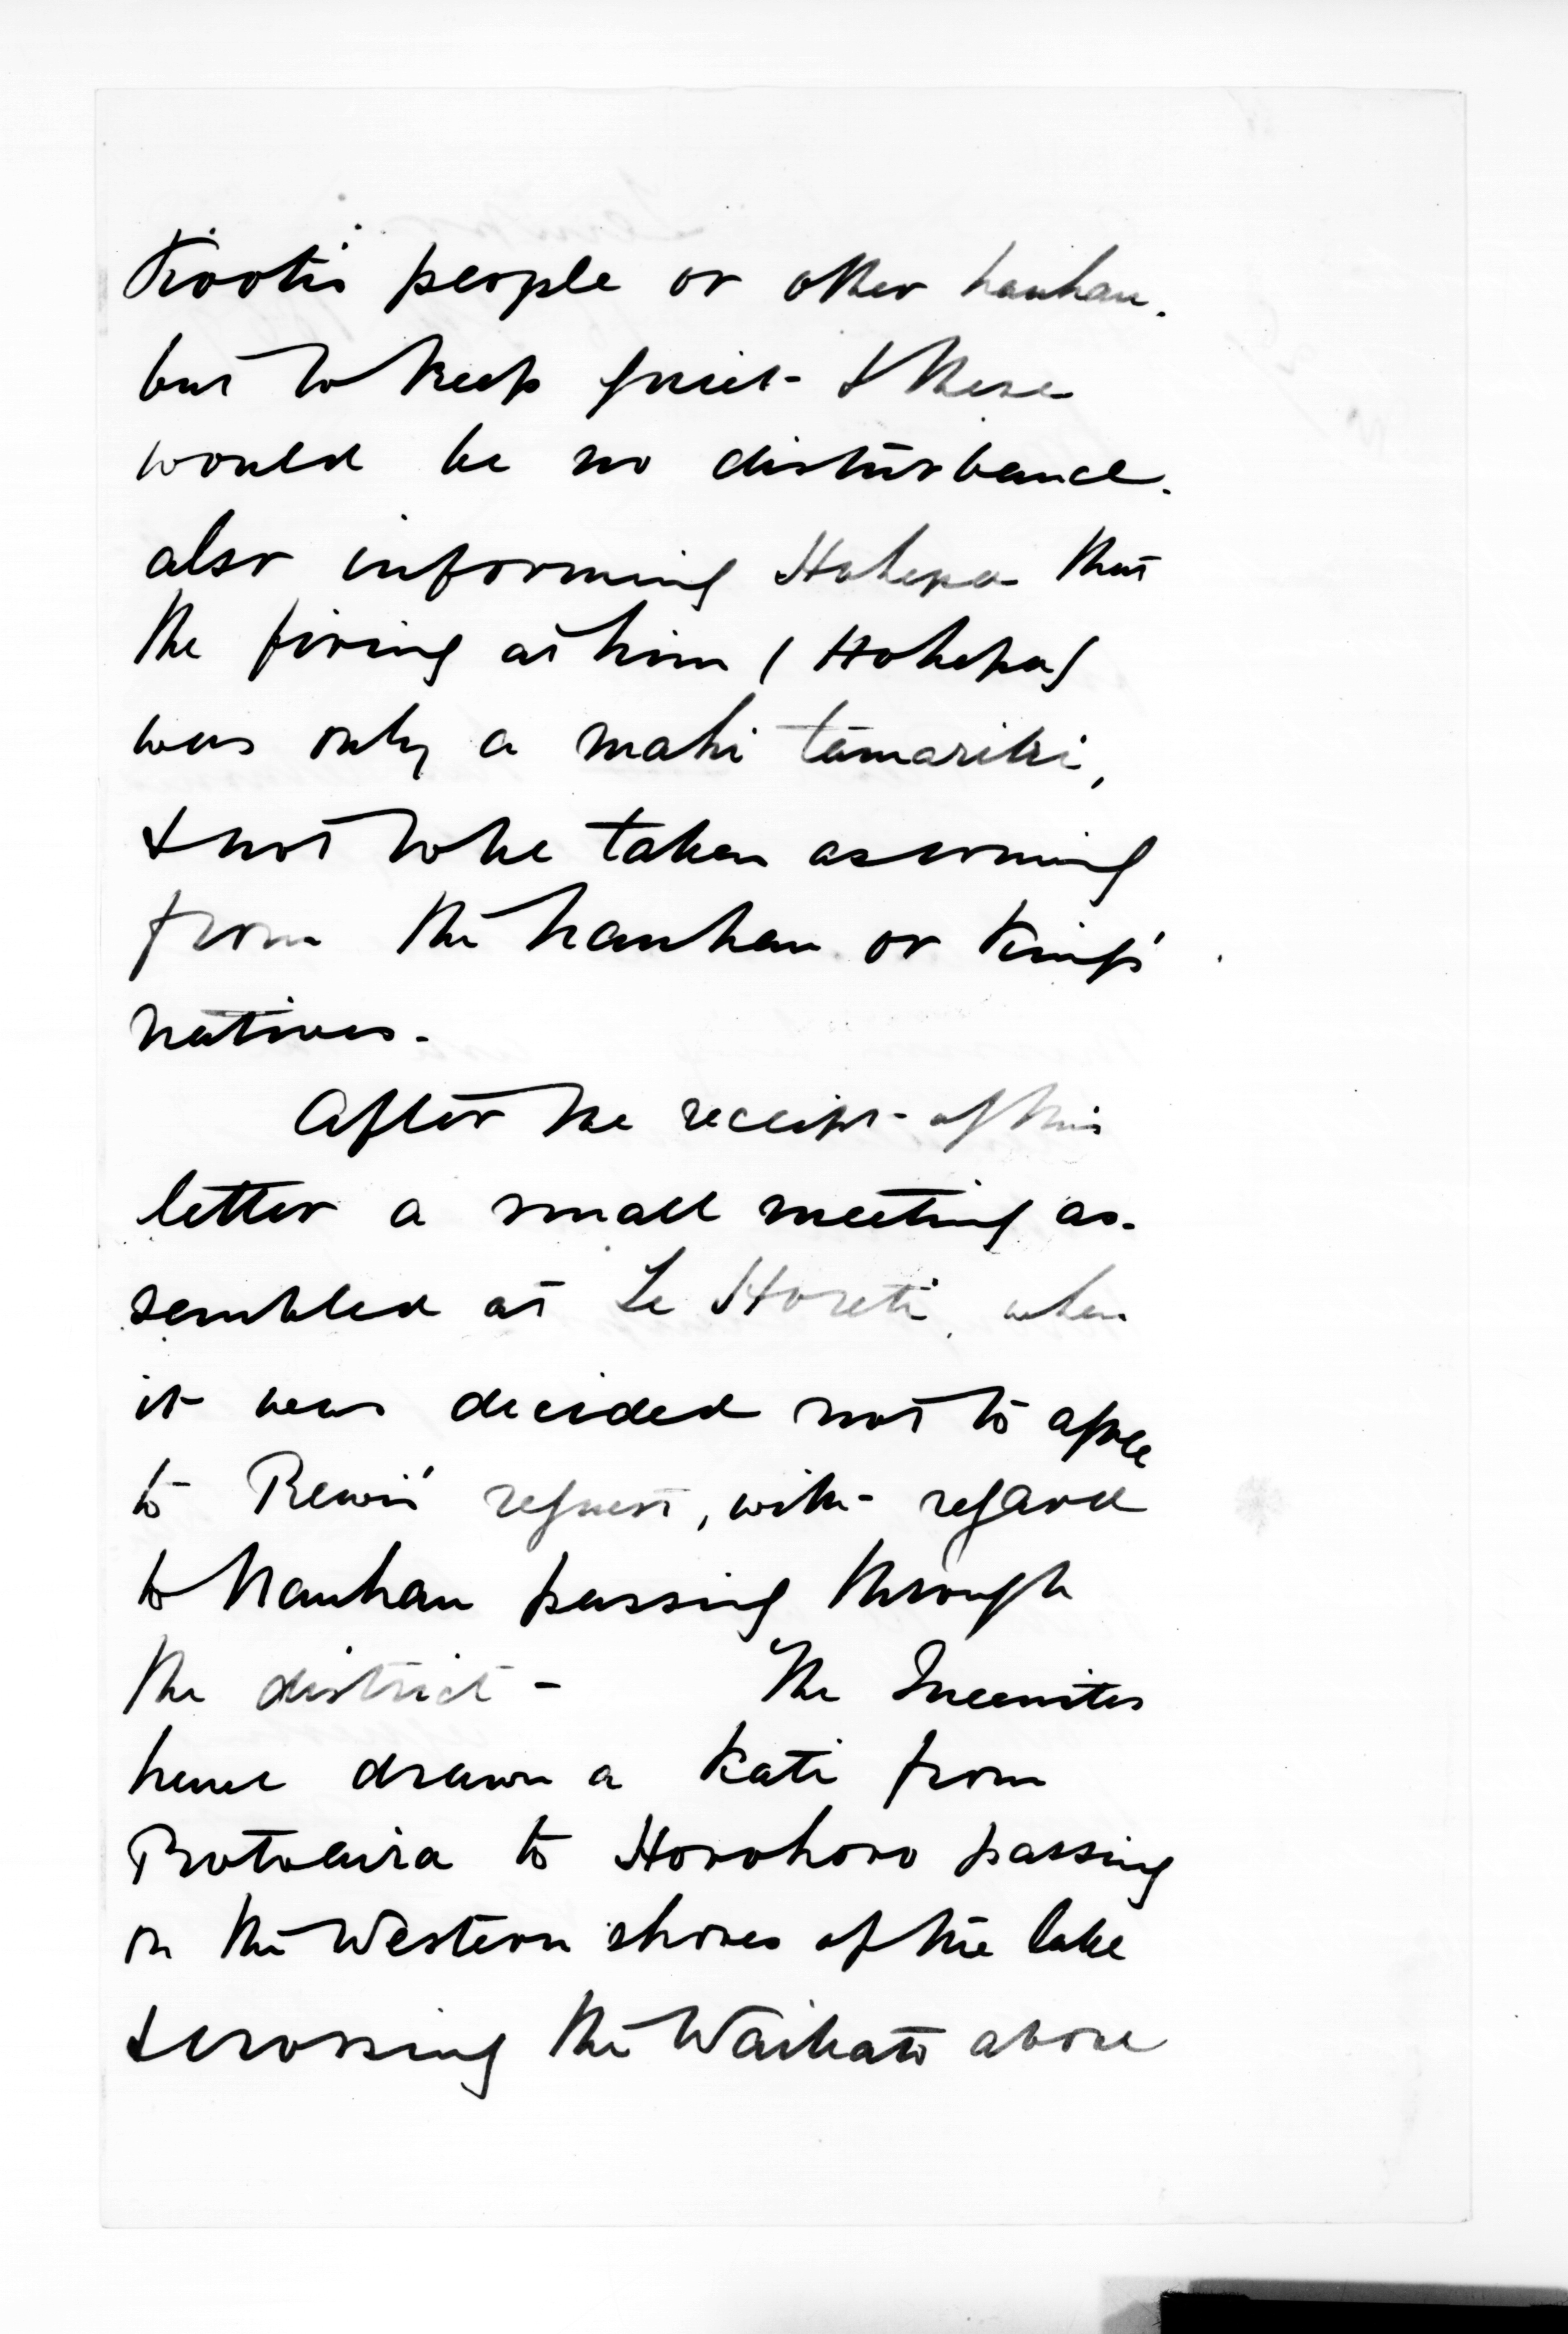 Kooti's people or other hauhau.
but to keep quiet & there
would be no disturbance.
also informing Hohepa that
the firing at him (Hohepa)
was only a mahi tamariki,
& not to be taken as coming
from the hauhau or King's
natives.
After the receipt of this
letter a small meeting as-
sembled at Te Horeti, when
it was decided not to agree
to Rewi's request, with regard
to hauhau passing through
the district - The Queenites
have drawn a kati from
Rotoaira to Horohoro passing
on the Western shores of the lake
& crossing the Waikato above